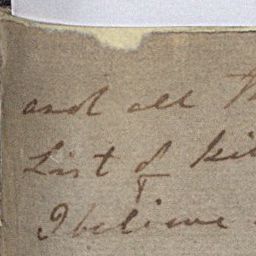 and all
List of
I believe